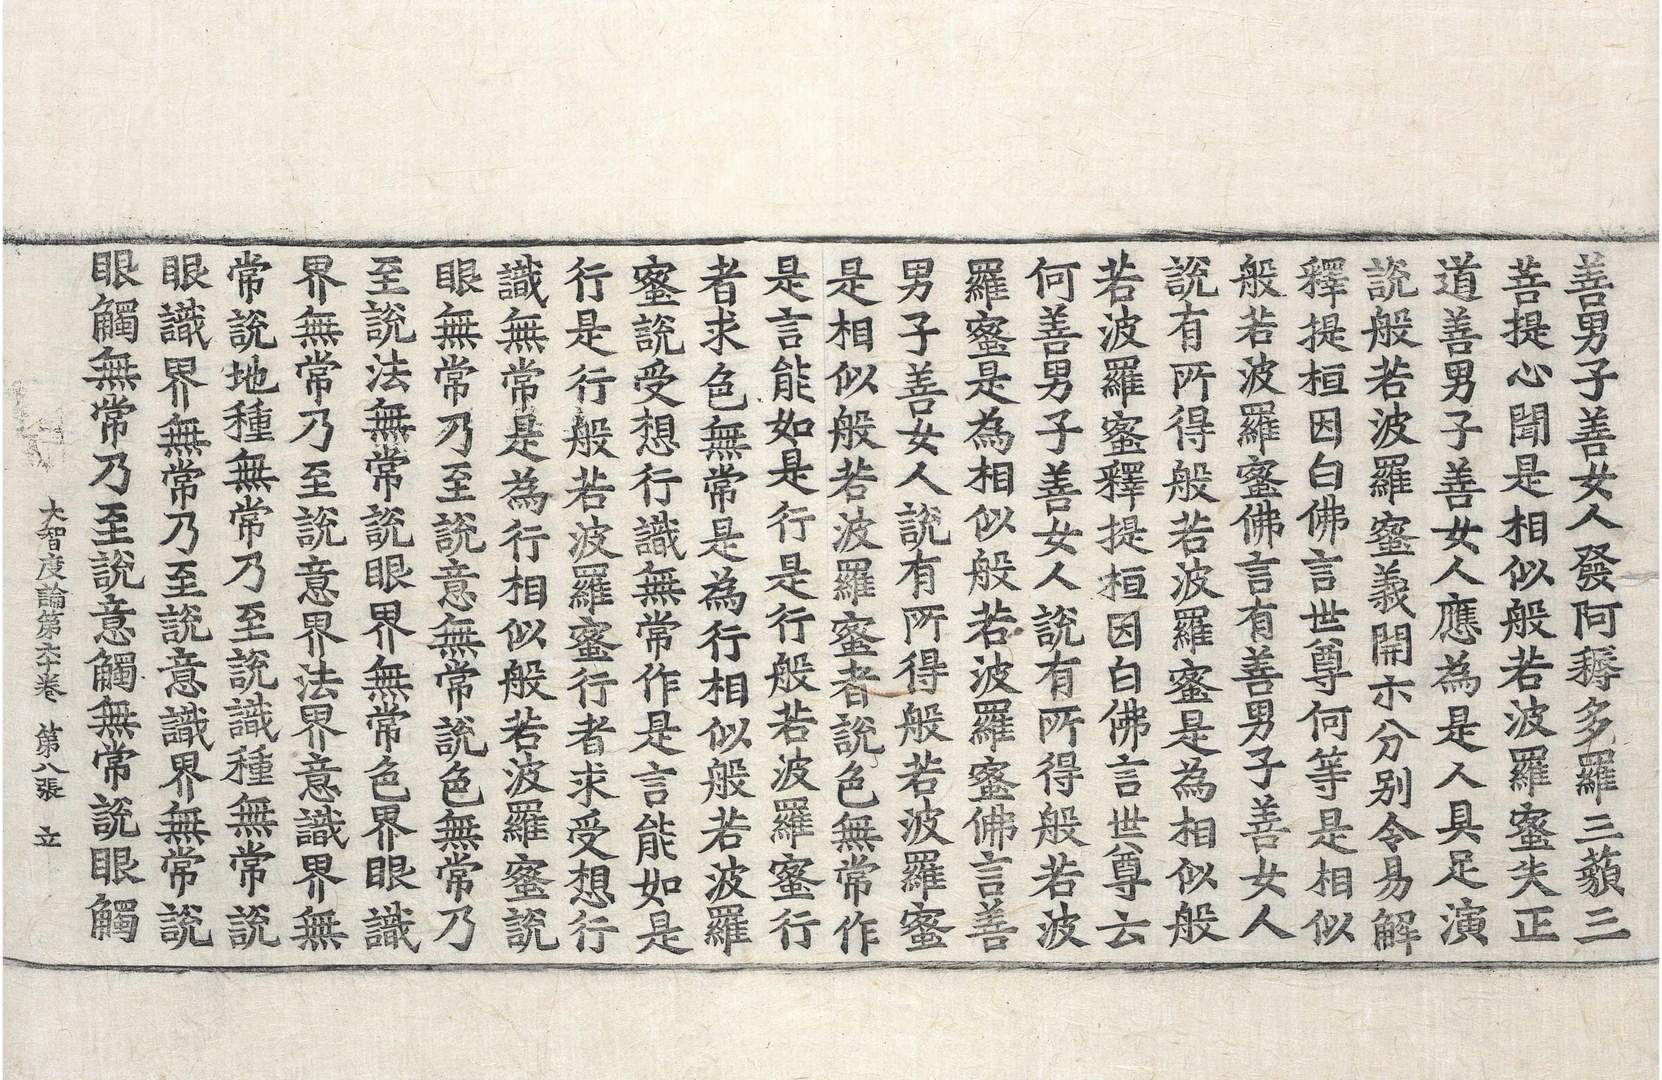 善男子善女人發阿耨多羅三藐三
菩提心聞是相似般若波羅蜜失正
道善男子善女人應為是人具足演
說般若波羅蜜義開示分別令易解
釋提桓因白佛言世尊何等是相似
般若波羅蜜佛言有善男子善女人
說有所得般若波羅蜜是為相似般
若波羅蜜釋提桓因白佛言世尊云
何善男子善女人說有所得般若波
羅蜜是為相似般若波羅蜜佛言善
男子善女人說有所得般若波羅蜜
是相似般若波羅蜜者說色無常作
是言能如是行是行般若波羅蜜行
者求色無常是為行相似般若波羅
蜜說受想行識無常作是言能如是
行是行般若波羅蜜行者求受想行
識無常是為行相似般若波羅蜜說
眼無常乃至說意無常說色無常乃
至說法無常說眼界無常色界眼識
界無常乃至說意界法界意識界無
常說地種無常乃至說識種無常說
眼識界無常乃至說意識界無常說
眼觸無常乃至說意觸無常說眼觸
大智度論第六十卷　第八張　立